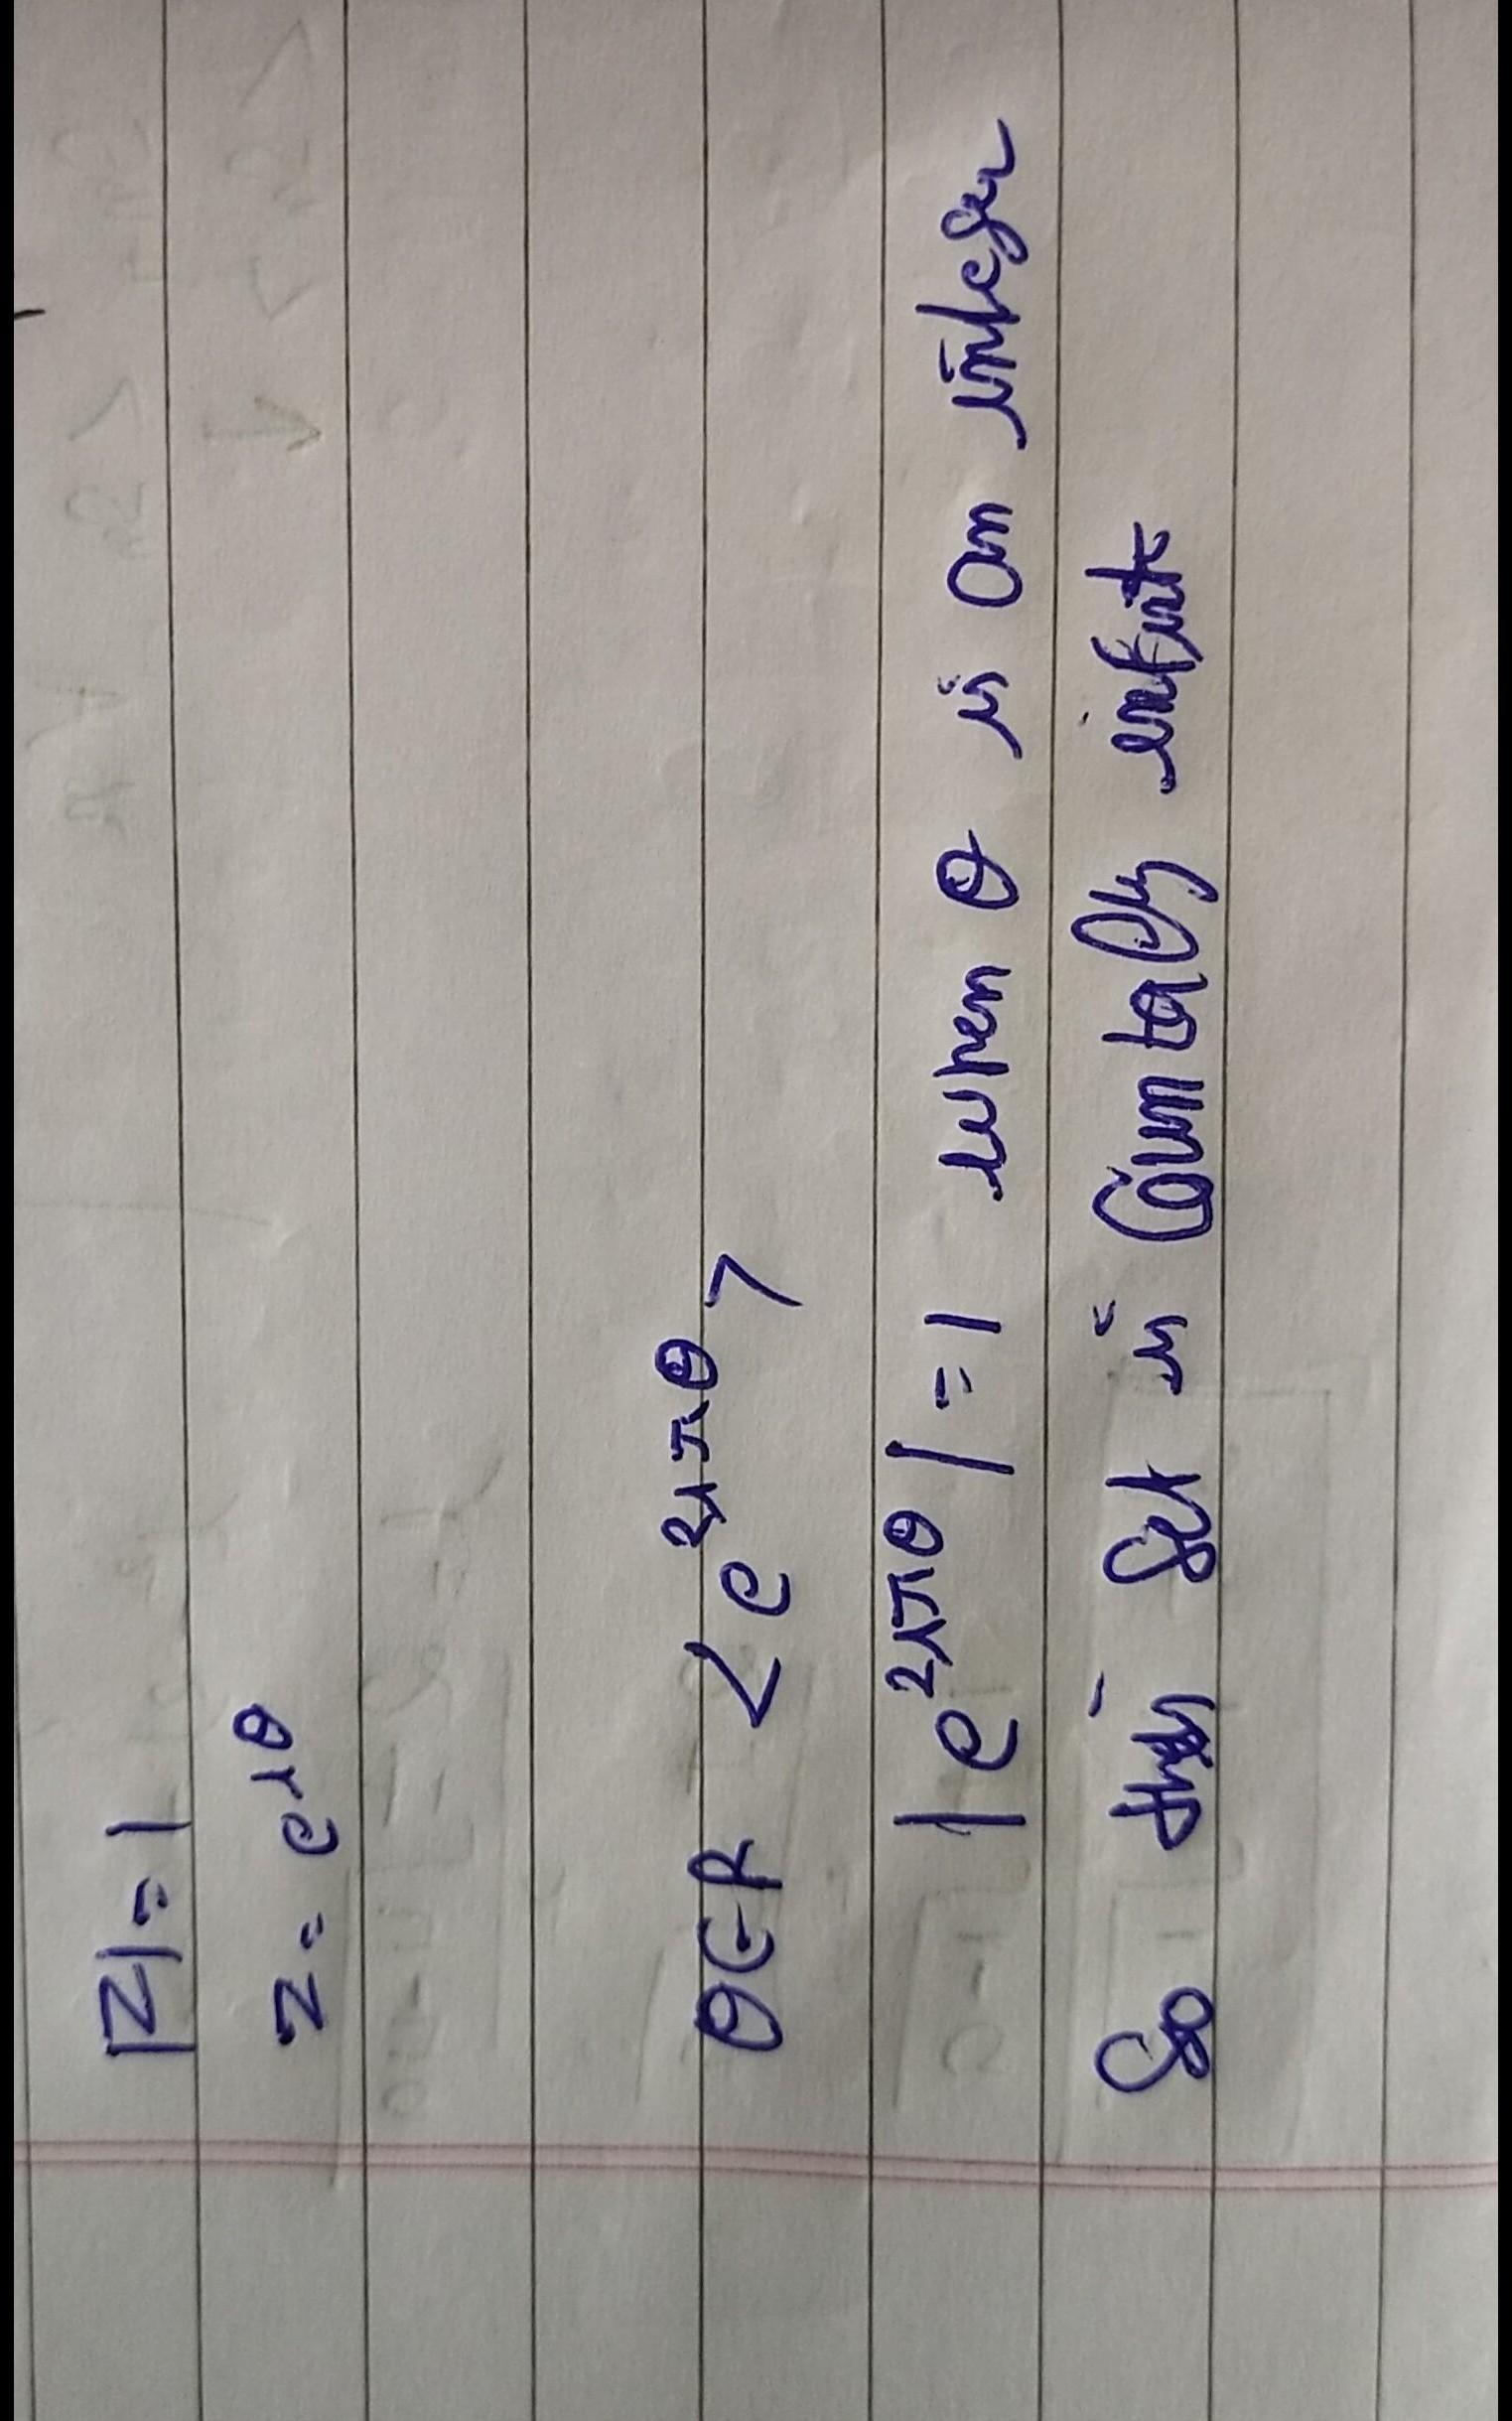 |z| = 1
z = e^{iθ}
θ∈R <e^{2iπθ}>
|e^{2iπθ}| = 1 when θ is an integer
So this set is Countably infinite